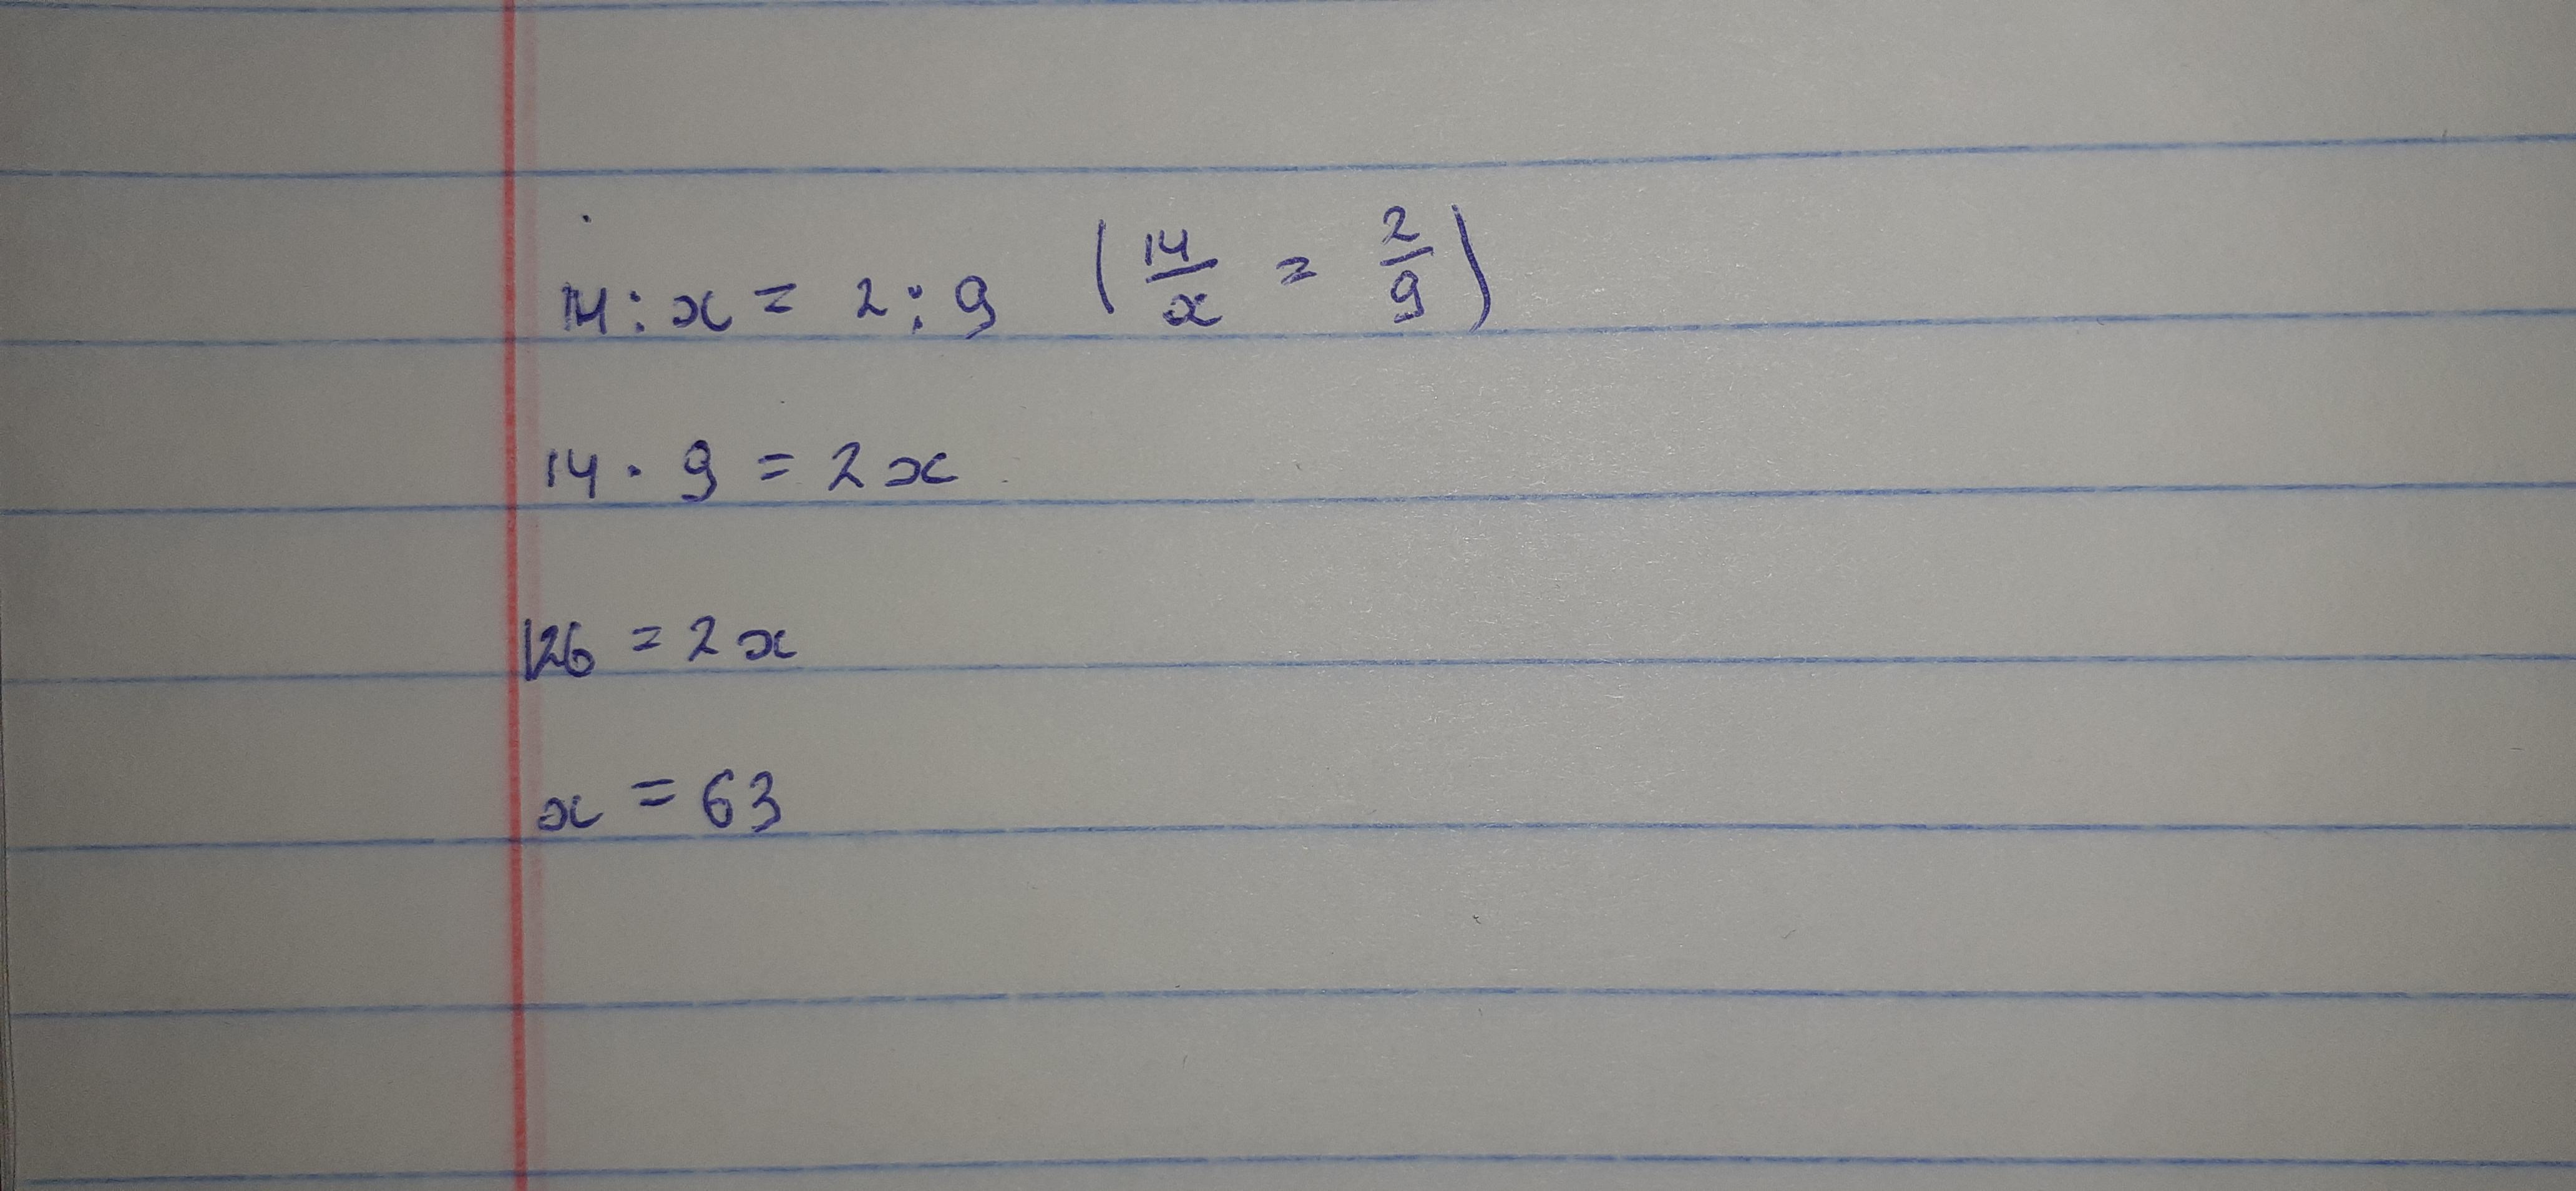 14 : x = 2 : 9 (14/x = 2/9)
14 · 9 = 2x
126 = 2x
x = 63